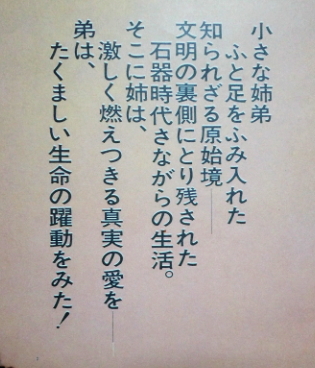 小さな姉弟
ふと足をふみ入れた
知られざる原始境──
文明の裏側にとり残された
石器時代さながらの生活。
そこに姉は、
激しく燃えつきる真実の愛を──
弟は、
たくましい生命の躍動をみた！